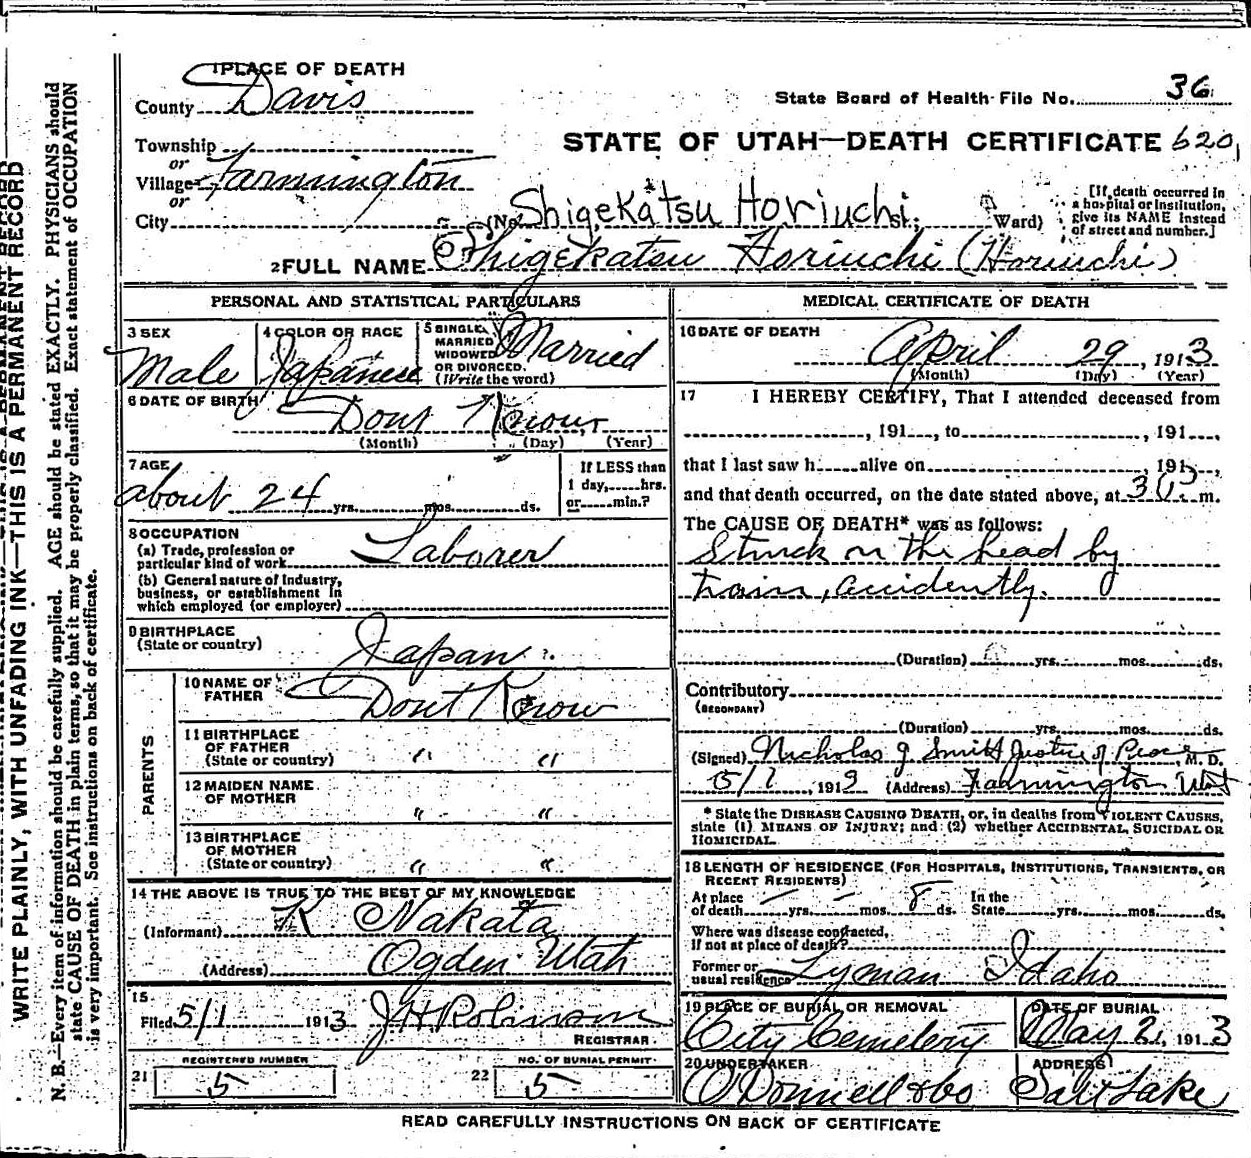 1 PLACE OF DEATH
County Davis
State Board of Health File No. 36
Township
STATE OF UTAH—DEATH CERTIFICATE 620
or
Village Farmington
or
City
(No. Shigekatsu Horiuchi St.; Ward)
[If death occurred in a hospital or institution, give its NAME instead of street and number.]
2 FULL NAME Shigekatsu Horiuchi (Horiuchi)
PERSONAL AND STATISTICAL PARTICULARS
3 SEX
Male
4 COLOR OR RACE
Japanese
5 SINGLE, MARRIED, WIDOWED OR DIVORCED. (Write the word)
Married
6 DATE OF BIRTH
Dont Know
(Month) (Day) (Year)
7 AGE
about 24 yrs. mos. ds.
If LESS than
1 day, hrs.
or min.?
8 OCCUPATION
(a) Trade, profession or
particular kind of work Laborer
(b) General nature of industry,
business, or establishment in
which employed (or employer)
9 BIRTHPLACE
(State or country)
Japan
PARENTS
10 NAME OF
FATHER
Dont Know
11 BIRTHPLACE
OF FATHER
(State or country) " "
12 MAIDEN NAME
OF MOTHER " "
13 BIRTHPLACE
OF MOTHER
(State or country) " "
14 THE ABOVE IS TRUE TO THE BEST OF MY KNOWLEDGE
(Informant) K Nakata
(Address) Ogden Utah
15
Filed 5/1 1913 J H Robinson
REGISTRAR
REGISTERED NUMBER
21 5
NO. OF BURIAL PERMIT
22 5
MEDICAL CERTIFICATE OF DEATH
16 DATE OF DEATH
April 29, 1913
(Month) (Day) (Year)
17 I HEREBY CERTIFY, That I attended deceased from
, 191 , to , 191 ,
that I last saw h alive on , 191 ,
and that death occurred, on the date stated above, at m.
The CAUSE OF DEATH* was as follows:
Struck on the head by
train, accidently.
(Duration) yrs. mos. ds.
Contributory
(SECONDARY)
(Duration) yrs. mos. ds.
(Signed) Nicholas G Smith Justice of Peace, M. D.
1913 (Address) Farmington Utah
* State the DISEASE CAUSING DEATH, or, in deaths from VIOLENT CAUSES,
state (1) MEANS OF INJURY; and (2) whether ACCIDENTAL, SUICIDAL OR
HOMICIDAL.
18 LENGTH OF RESIDENCE (FOR HOSPITALS, INSTITUTIONS, TRANSIENTS, OR
RECENT RESIDENTS)
At place
of death — yrs. — mos. 8 ds.
In the
State yrs. mos. ds.
Where was disease contracted,
if not at place of death?
Former or
usual residence Lyman Idaho
19 PLACE OF BURIAL OR REMOVAL
City Cemetery
DATE OF BURIAL
May 2, 1913
20 UNDERTAKER
O'Donnell & Co
ADDRESS
Salt Lake
READ CAREFULLY INSTRUCTIONS ON BACK OF CERTIFICATE
WRITE PLAINLY, WITH UNFADING INK—THIS IS A PERMANENT RECORD
N. B.—Every item of information should be carefully supplied. AGE should be stated EXACTLY. PHYSICIANS should
state CAUSE OF DEATH in plain terms, so that it may be properly classified. Exact statement of OCCUPATION
is very important. See instructions on back of certificate.